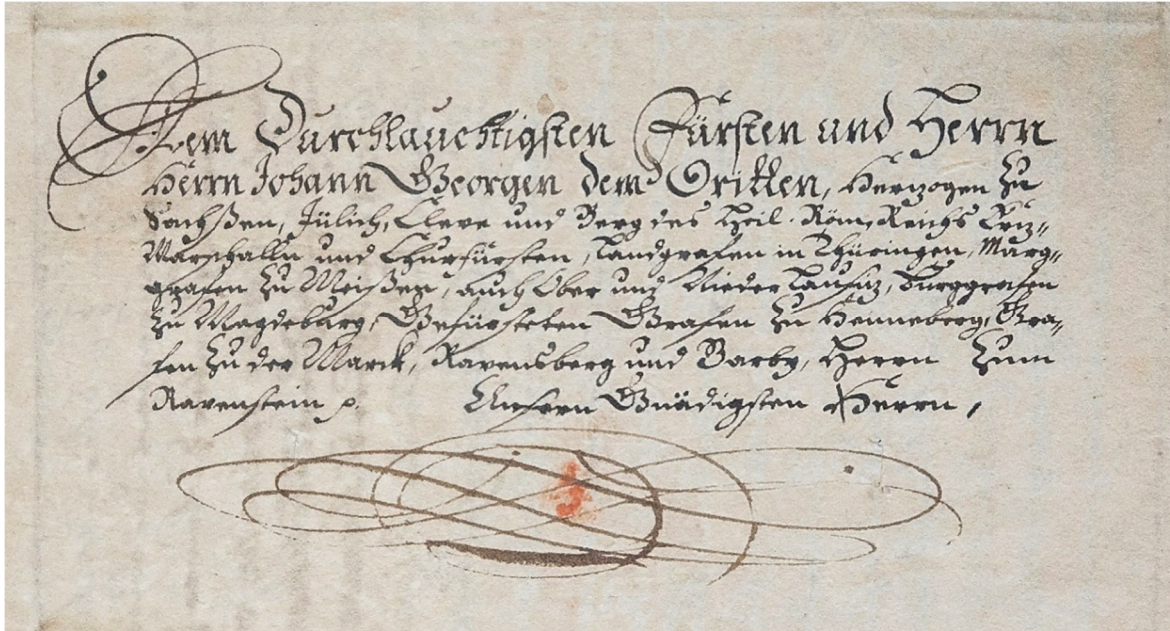 Dem Durchlauchtigsten Fürsten und Herrn
Herrn Johann Georgen dem Dritten, Herzogen zu
Sachßen, Jülich, Cleve und Berg des Heil. Röm. Reichs Ertz-
Marschalln und Churfürsten, Landgrafen in Thüringen, Marg-
grafen zu Meißen, auch Ober und Nieder Lausitz, Burggrafen
zu Magdeburg, Gefürsteten Grafen zu Henneberg, Gra-
fen zu der Marck, Ravensberg und Barby, Herrn zum
Ravenstein p. Unsern Gnädigsten Herrn,